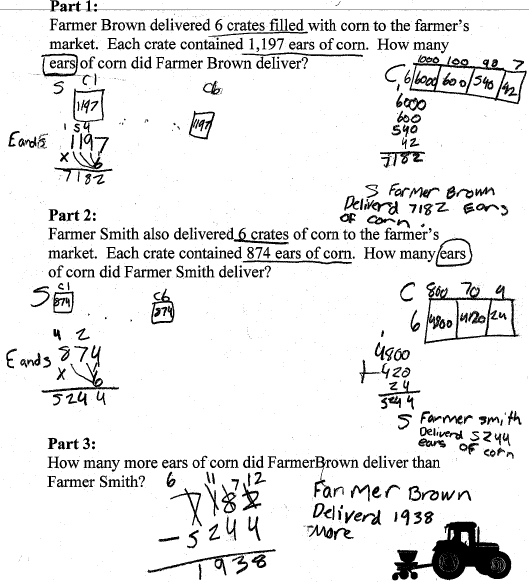 Part 1:
Farmer Brown delivered 6 crates filled with corn to the farmer's
market. Each crate contained 1,197 ears of corn. How many
ears of corn did Farmer Brown deliver?
S C1 C6
1197 1197
1 5 4
1197
x 6
7182
C 1000 100 90 7
6 6000 600 540 42
6000
600
540
42
7182
S Farmer Brown
Deliverd 7182 Ears
of corn.
Part 2:
Farmer Smith also delivered 6 crates of corn to the farmer's
market. Each crate contained 874 ears of corn. How many ears
of corn did Farmer Smith deliver?
S C1 C6
874 874
4 2
874
x 6
5244
C 800 70 4
6 4800 420 24
4800
+ 420
24
5244
S Farmer smith
Deliverd 5244
ears of corn
Part 3:
How many more ears of corn did FarmerBrown deliver than
Farmer Smith?
6 11 7 12
7182
- 5244
1938
Farmer Brown
Deliverd 1938
More